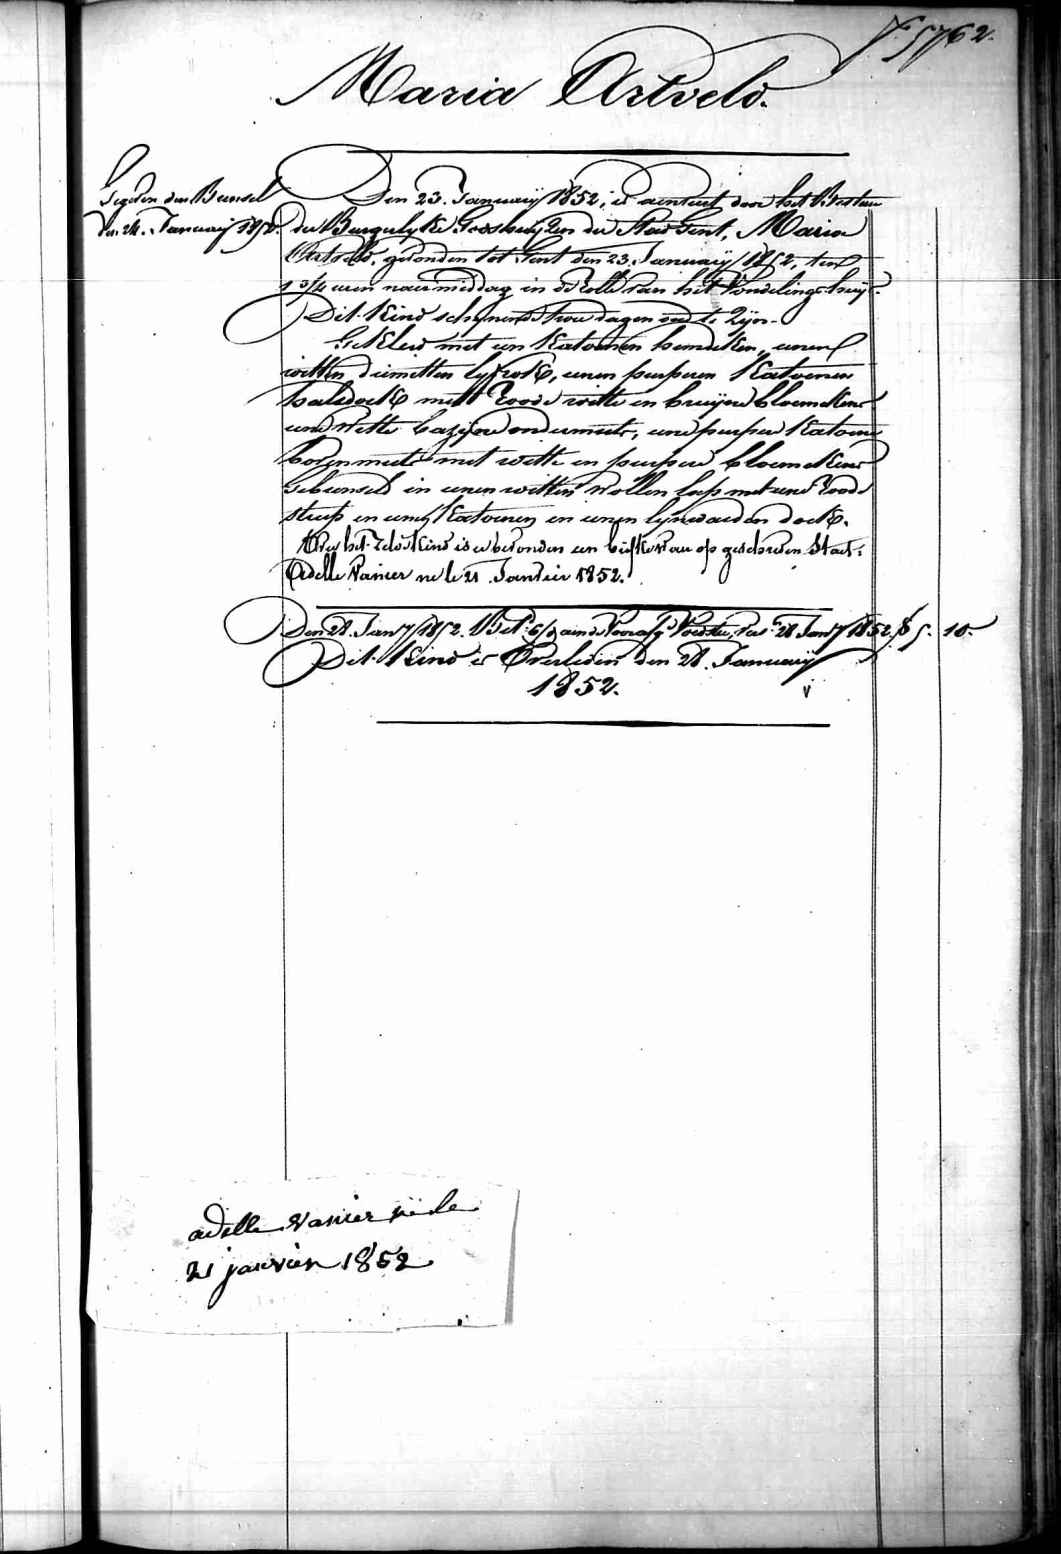 N.º 5762.
Maria Artvelo.
Gegeven den Bunsel
den 24. January 1852.
Den 23. January 1852, is aenveert door het Bestuer
der Burgelyke Godshuyzen der Stad Gent, Maria
Artvelo, gevonden tot Gent den 23. January 1852, ten
1 3/4 uren naermiddag in de Rolle van het Vondelingshuys.
Dit Kind schynende twee dagen oud te zyn.
Gekleed met een Katoenen hemdeken, eenen
witten diemitten lyfrok, eenen purperen Katoenen
halsdoek mett roode witte en bruyne bloemekens
eene witte bazyne ondermuts, eene purpere Katoene
bovenmuts met witte en purpere bloemekens
Gebunseld in eenen witten wollen lap met eene roode
streep en eenen Katoenen en eenen lynwaeden doek.
Over het zelve Kind is er bevonden een briefken waer op geschreven staet:
Adelle Vanier né le 21 Janvier 1852.
Den 28. Jany 1852. Bet. 6/d aen de Voorafg. Voedster, 28 Jany 1852. 5. 10.
Dit Kind is Overleden den 28. January
1852.
adelle vanier né le
21 janvier 1852